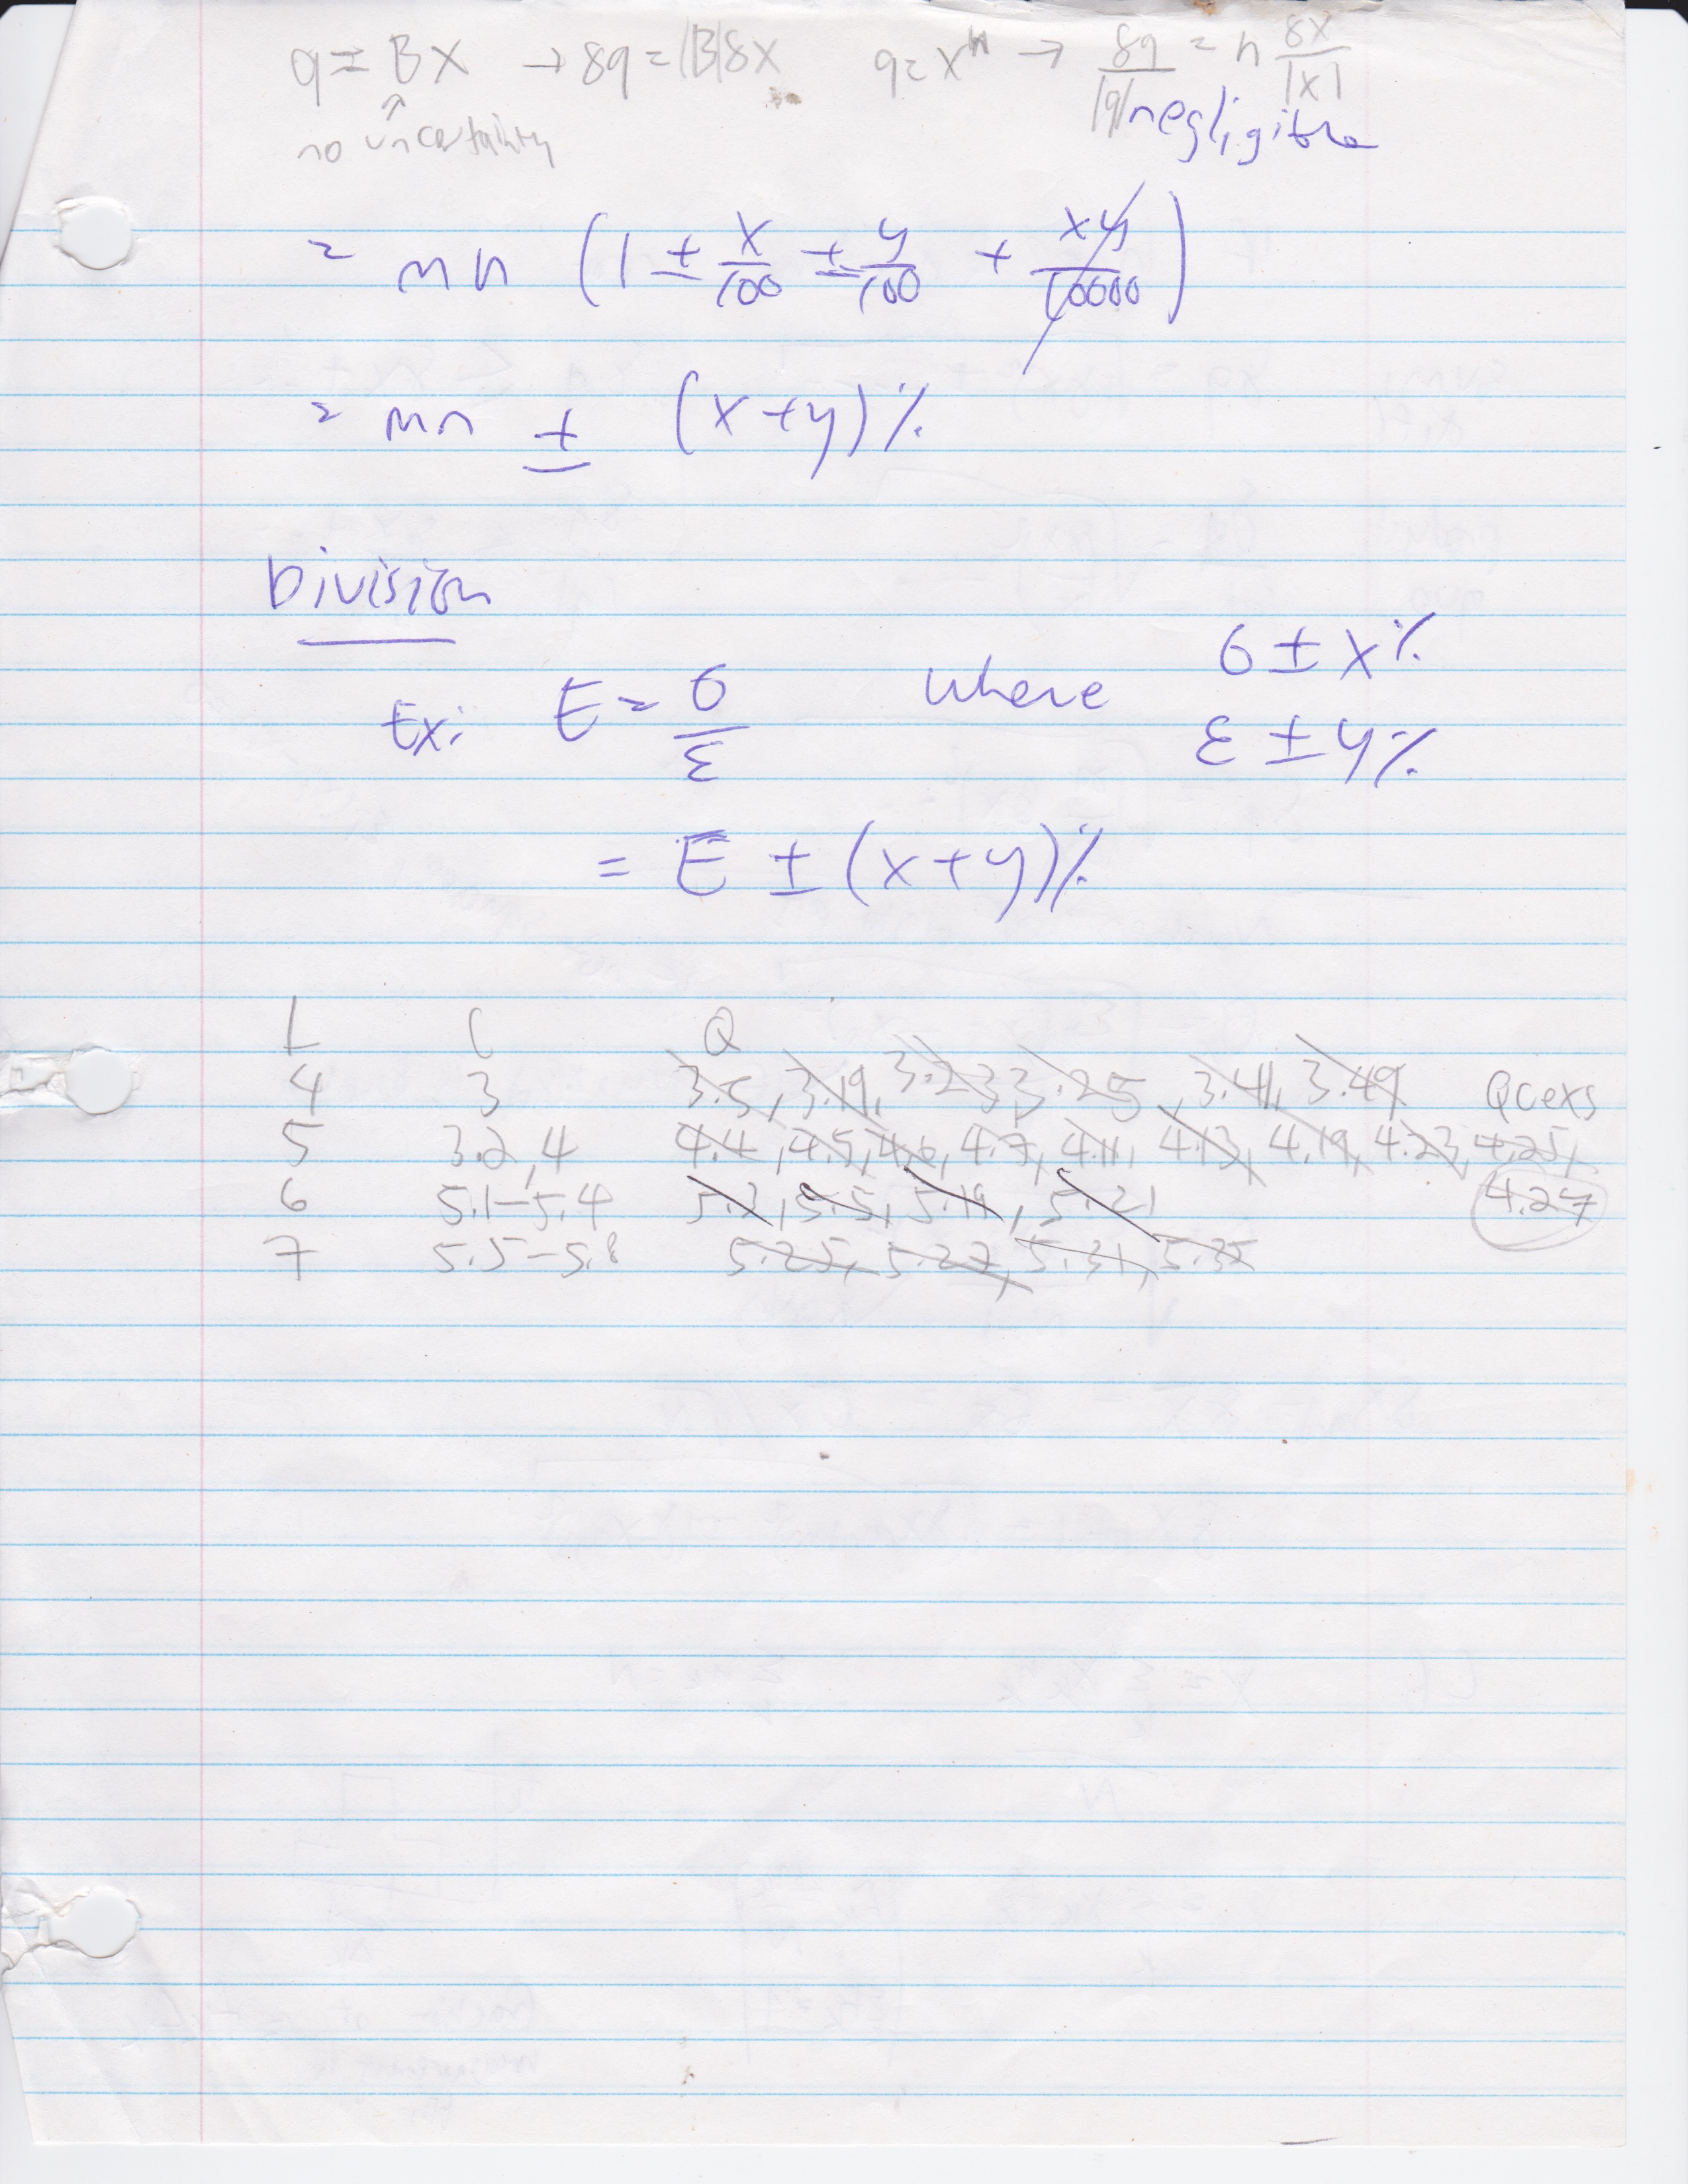 q = Bx → δq = |B|δx q = xⁿ → δq/|q| = n δx/|x|
↑
no uncertainty negligible
= mn (1 ± x/100 ± y/100 + xy/10000)
= mn ± (x+y)%
Division
Ex: E = σ/ε where σ ± x%
ε ± y%
= E ± (x+y)%
L C Q
4 3 3.5, 3.19, 3.23, 3.25, 3.41, 3.49
5 3.2, 4 4.4, 4.5, 4.6, 4.7, 4.11, 4.13, 4.19, 4.23, 4.25,
6 5.1-5.4 5.2, 5.5, 5.19, 5.21 4.27
7 5.5-5.8 5.25, 5.27, 5.31, 5.35